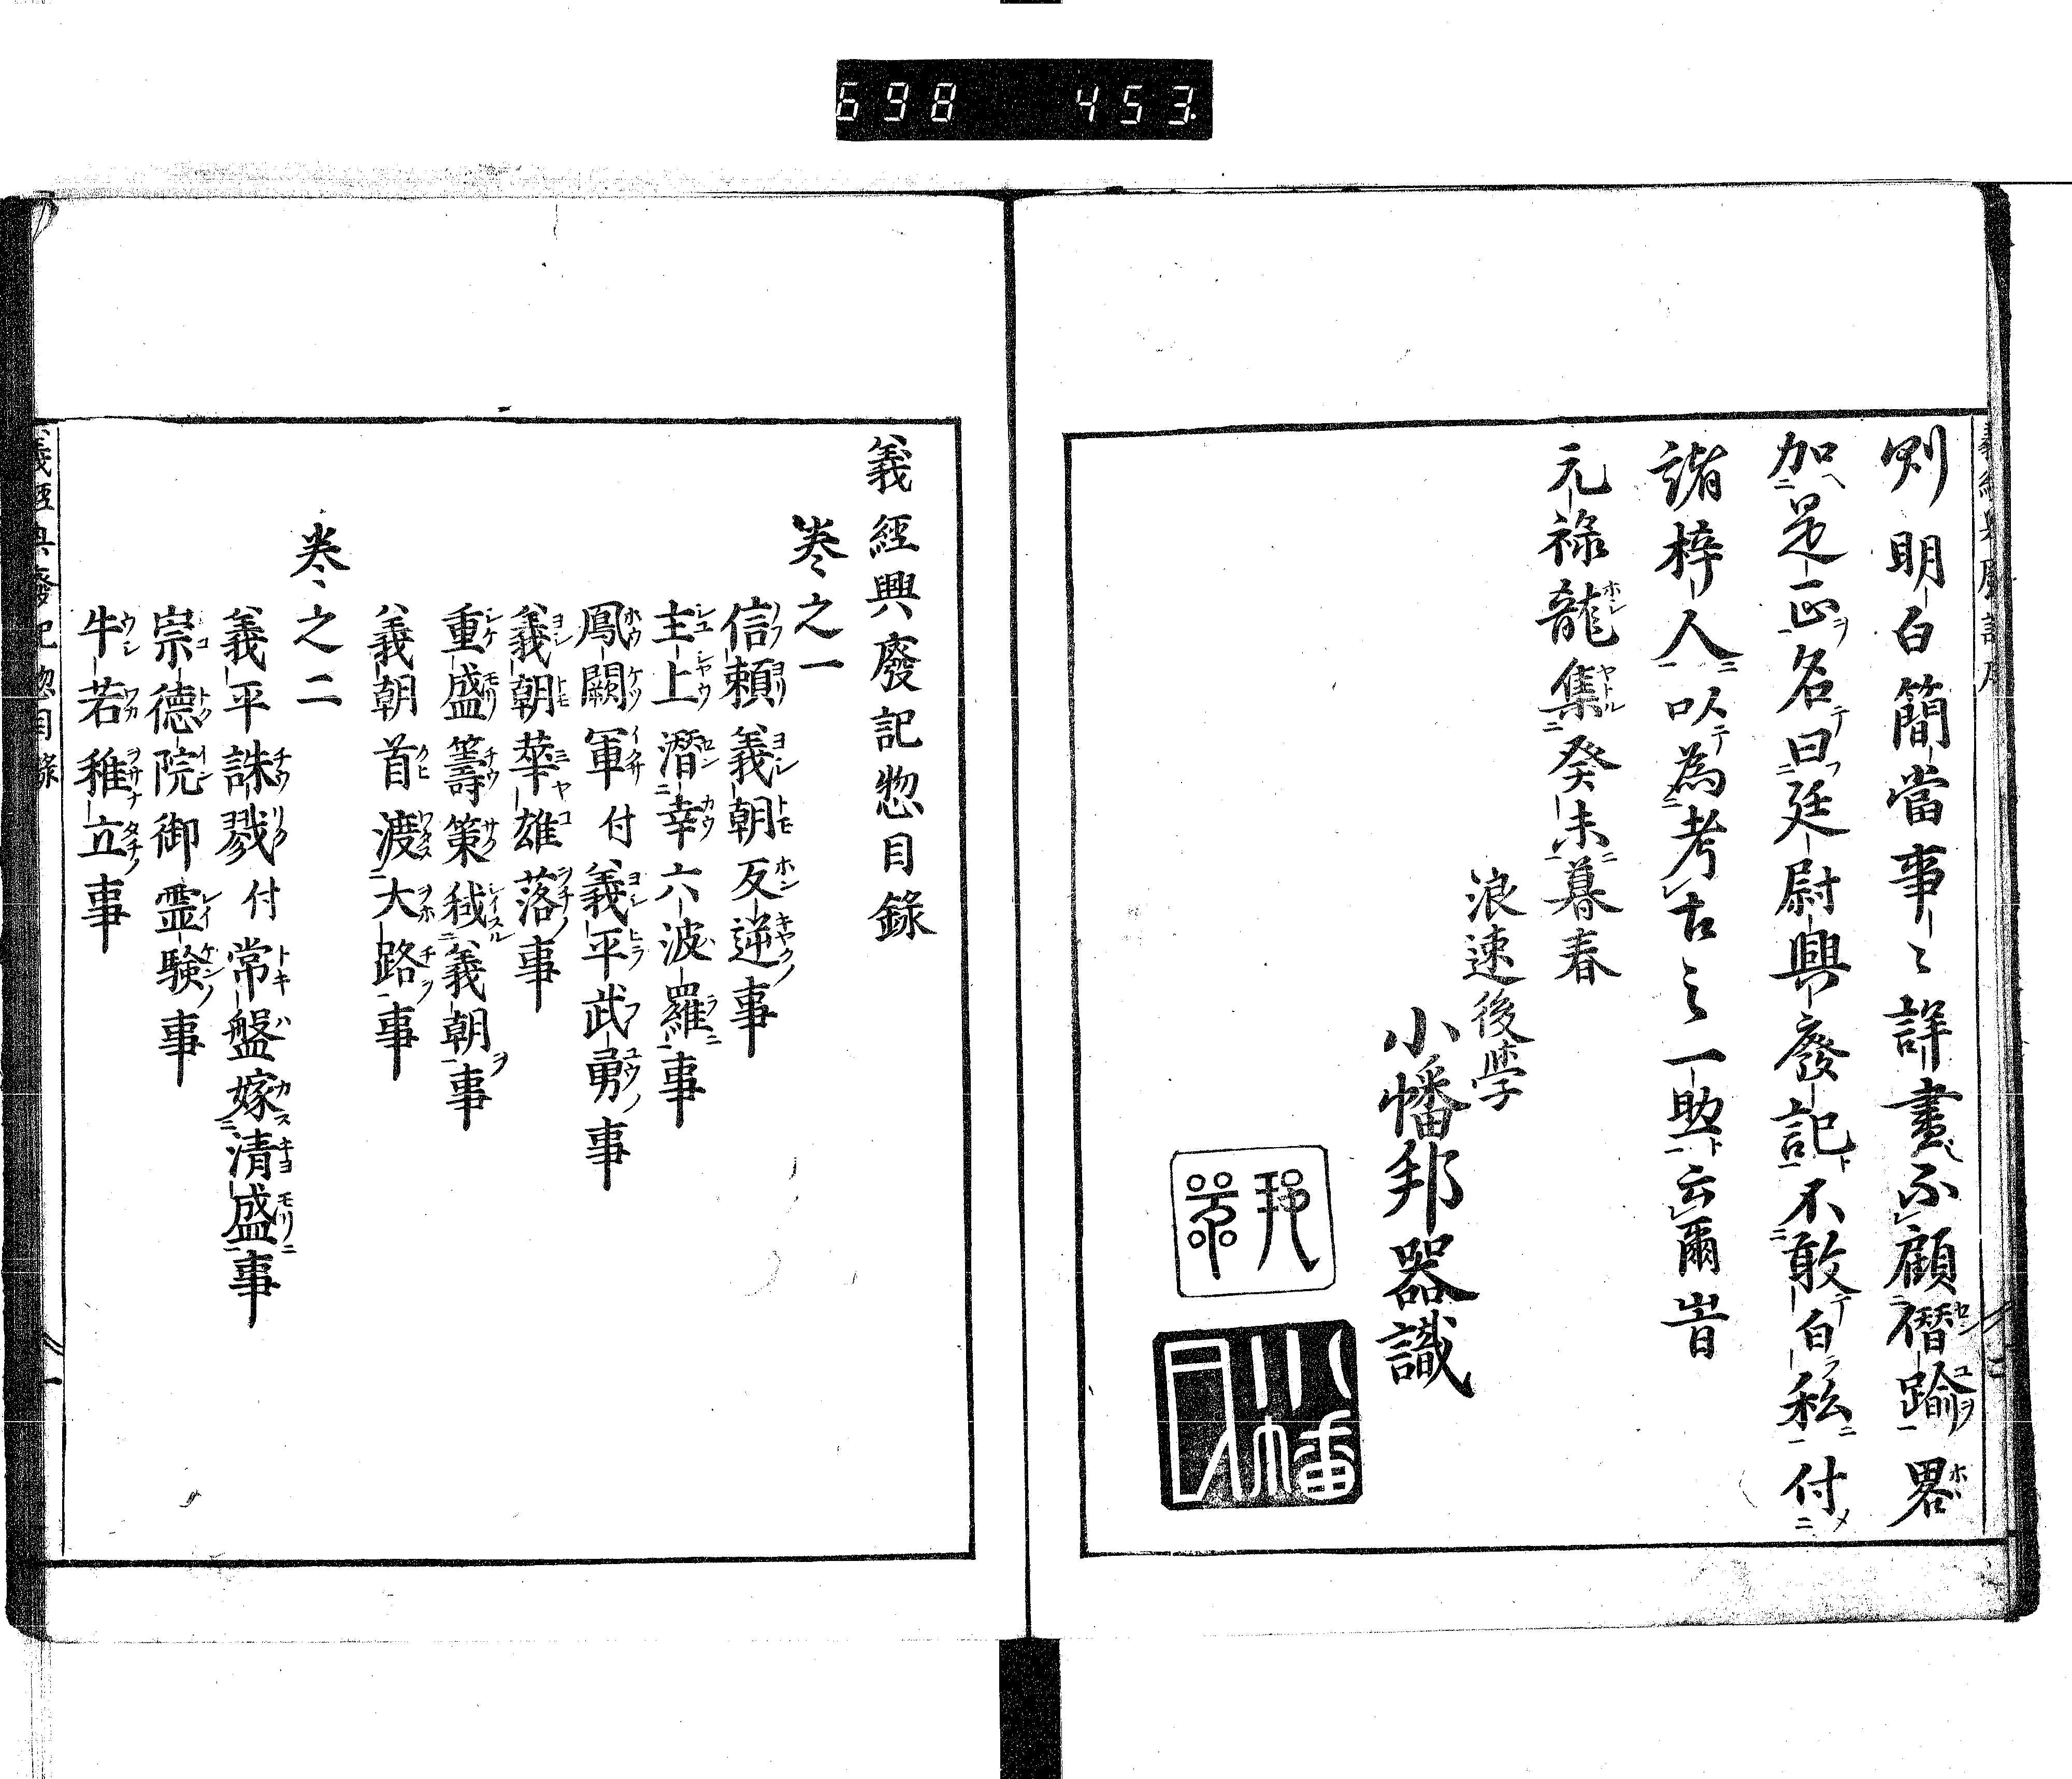 698 453
則明白簡當事〻詳盡不顧僭踰畧
加是正名曰廷尉興廢記不敢自私付
諸梓人以為考古之一助云爾旹
元禄龍集癸未暮春
浪速後學
小幡邦器識
義經興廢記惣目錄
巻之一
信頼義朝反逆事
主上潛幸六波羅事
鳳闕軍付義平武勇事
義朝華雄落事
重盛籌策㦯義朝事
義朝首渡大路事
巻之二
義平誅戮付常盤嫁清盛事
崇德院御霊験事
牛若稚立事
義經興廢記惣目錄 一